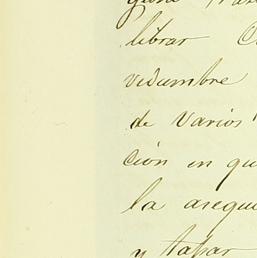 librar
vidumbre
de varios
ción en qu
la asequ
y tapar